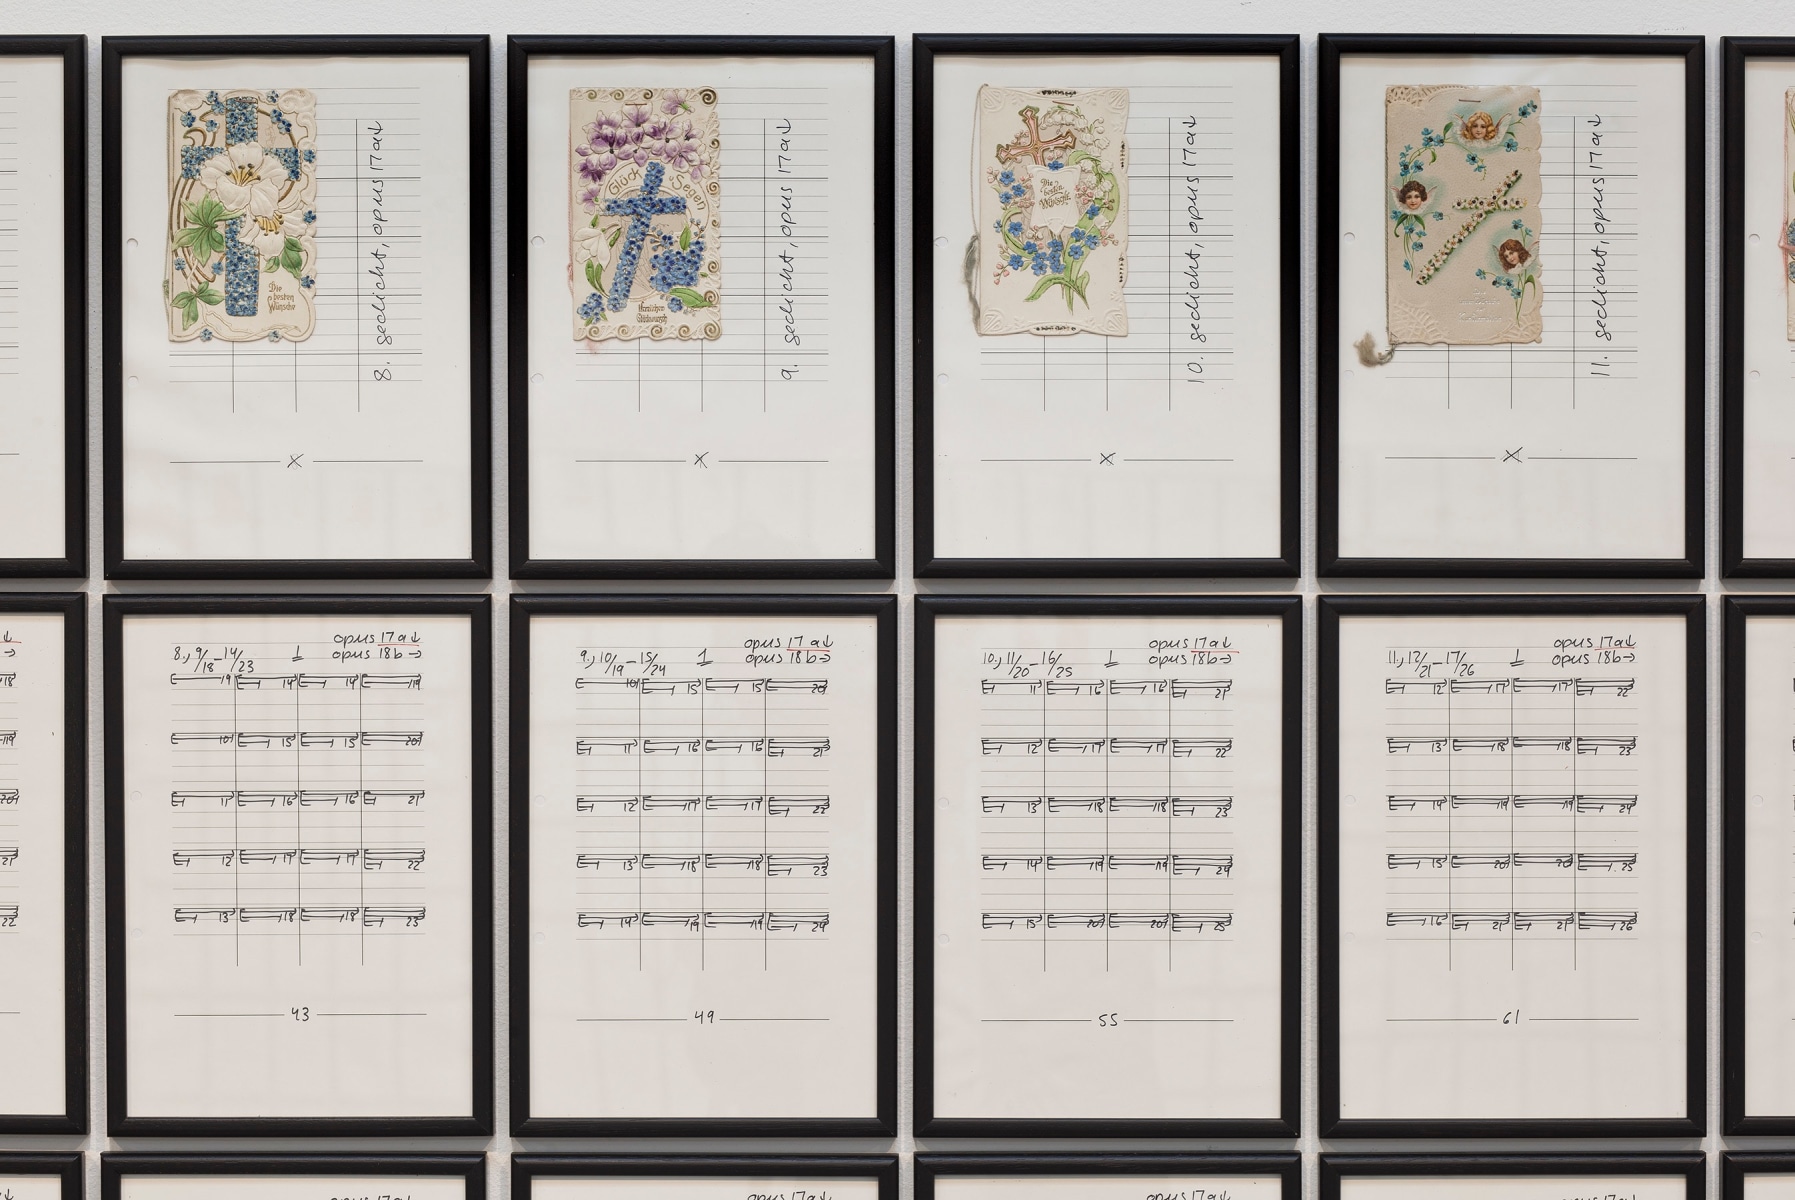 8. gedicht, opus 17a↓
Die
besten
Wünsche
X
9. gedicht, opus 17a↓
Glück u. Segen
Herzlichen
Glückwunsch
X
10. gedicht, opus 17a↓
Die
besten
Wünsche
X
11. gedicht, opus 17a↓
X
opus 17a↓
8., 9/18–14/23 1 opus 18b→
9 14 14 19
10 15 15 20
11 16 16 21
12 17 17 22
13 18 18 23
43
opus 17a↓
9., 10/19–15/24 1 opus 18b→
10 15 15 20
11 16 16 21
12 17 17 22
13 18 18 23
14 19 19 24
49
opus 17a↓
10., 11/20–16/25 1 opus 18b→
11 16 16 21
12 17 17 22
13 18 18 23
14 19 19 24
15 20 20 25
55
opus 17a↓
11., 12/21–17/26 1 opus 18b→
12 17 17 22
13 18 18 23
14 19 19 24
15 20 20 25
16 21 21 26
61
18
19
20
21
22
opus 17a↓
opus 17a↓
opus 17a↓
opus 17a↓